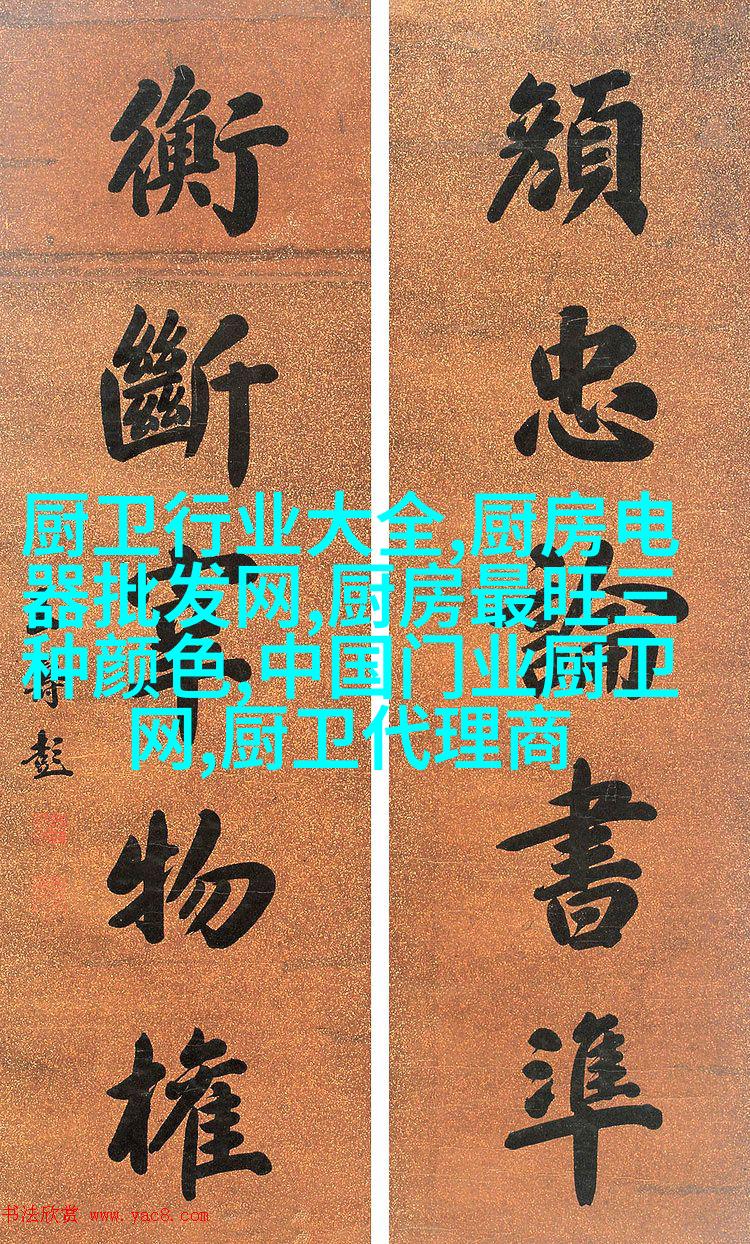 顏忠書準
衡斷物權
彭
厨卫行业大全,厨房电
器批发网,厨房最旺三
种颜色,中国门业厨卫
网,厨卫代理商
书法欣赏 www.yac8.com